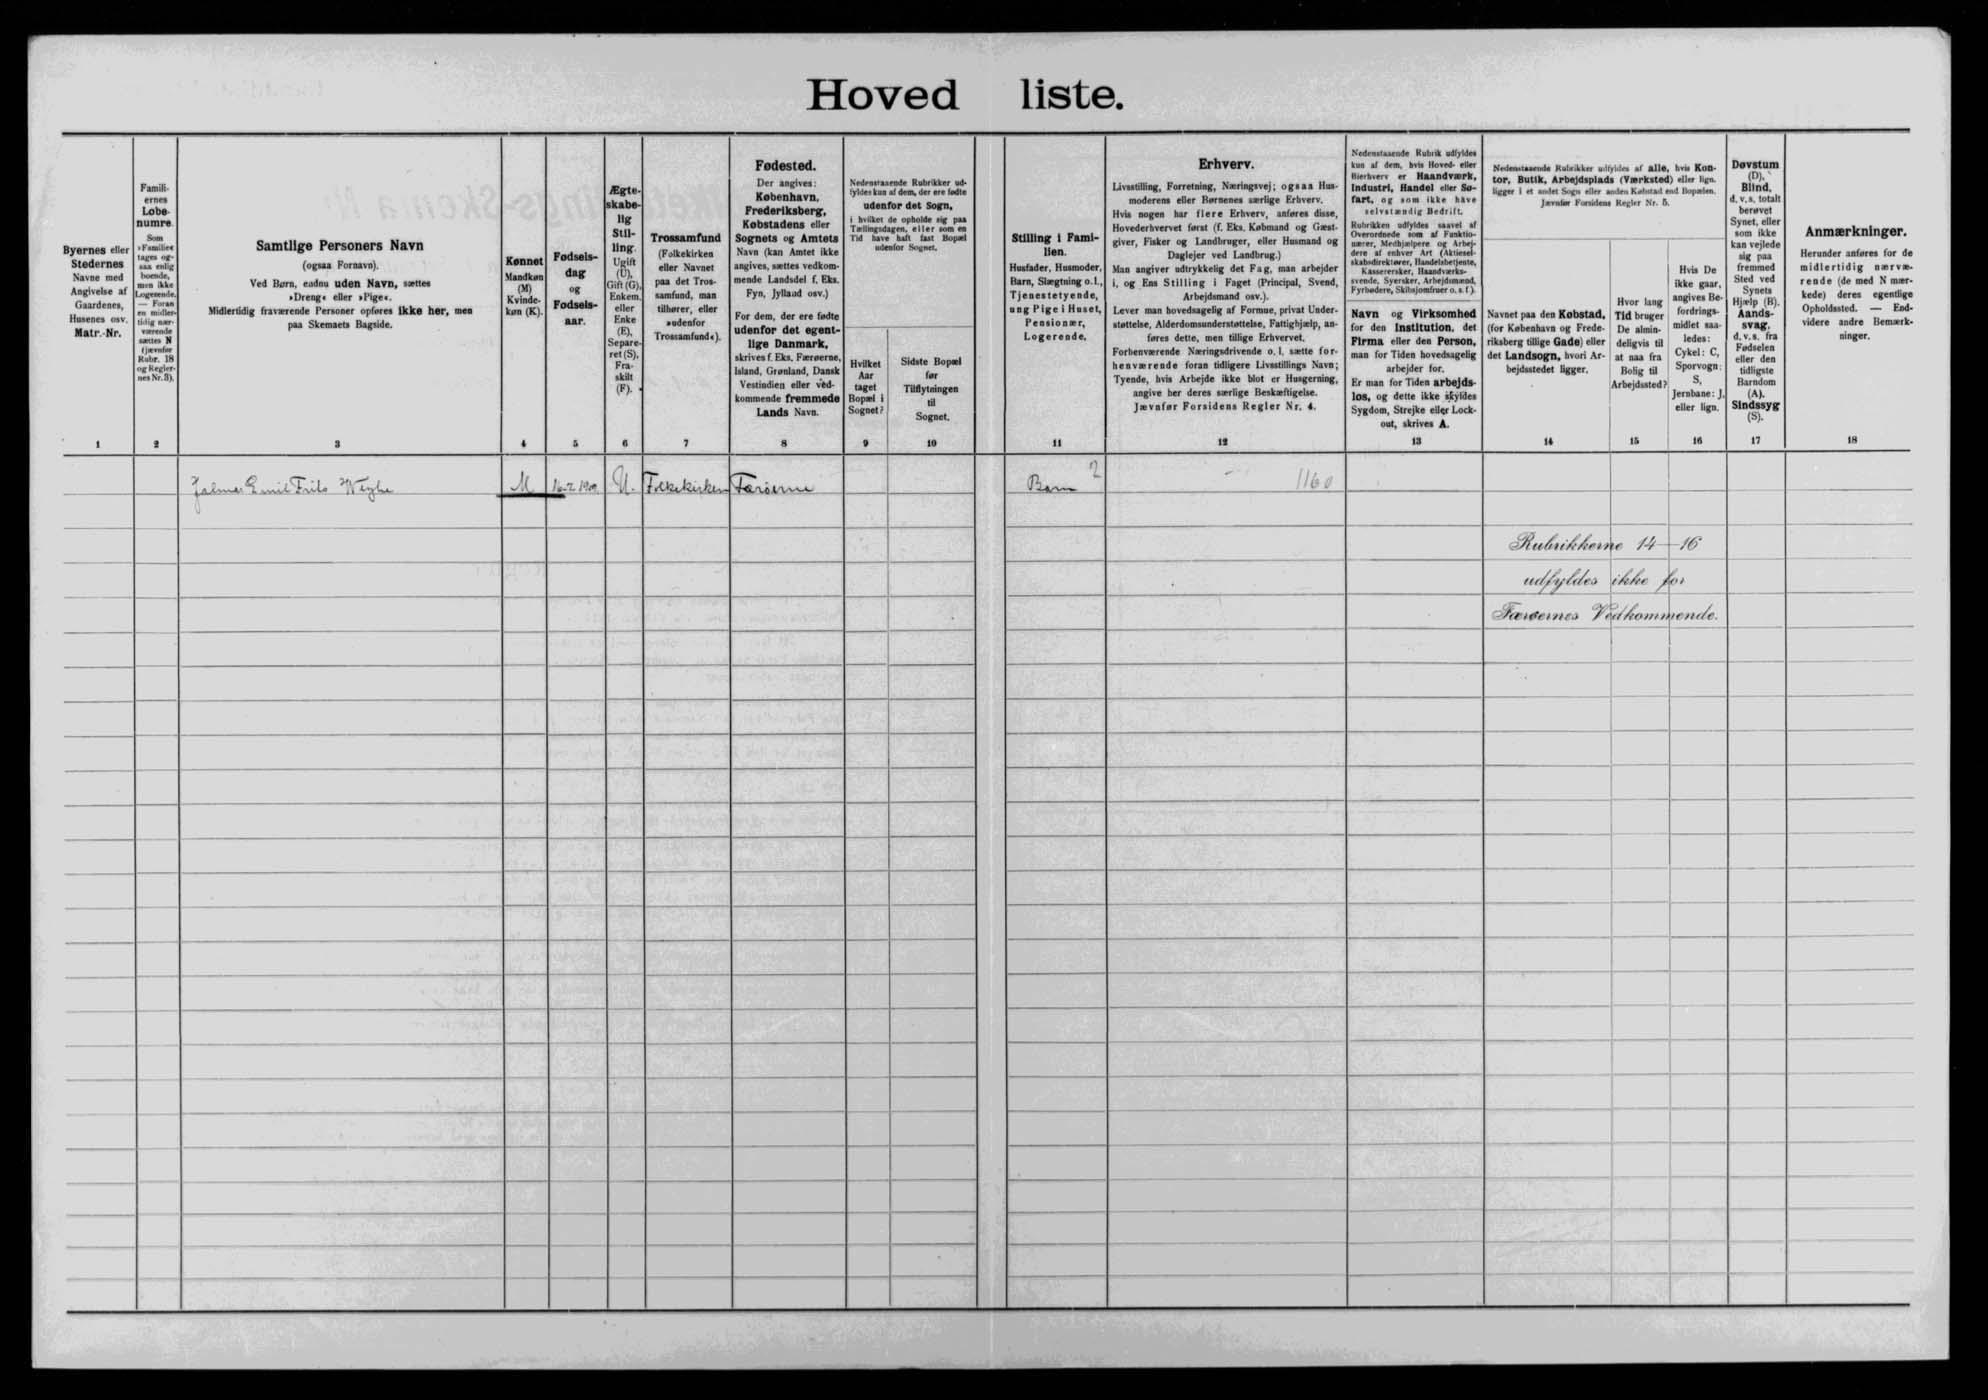 Hoved liste.
Byernes eller
Stedernes
Navne med
Angivelse af
Gaardenes,
Husenes osv.
Matr.-Nr.
1
Famili-
ernes
Løbe-
numre.
Som
»Familie«
tages og-
saa enlig
boende,
men ikke
Logerende.
— Foran
en midler-
tidig nær-
værende
sættes N
(jævnfør
Rubr. 18
og Regler-
nes Nr. 3).
2
Samtlige Personers Navn
(ogsaa Fornavn).
Ved Børn, endnu uden Navn, sættes
»Dreng« eller »Pige«.
Midlertidig fraværende Personer opføres ikke her, men
paa Skemaets Bagside.
3
Kønnet
Mandkøn
(M)
Kvinde-
køn (K).
4
Fødsels-
dag
og
Fødsels-
aar.
5
Ægte-
skabe-
lig
Stil-
ling.
Ugift
(U),
Gift (G),
Enkem.
eller
Enke
(E),
Separe-
ret (S),
Fra-
skilt
(F).
6
Trossamfund
(Folkekirken
eller Navnet
paa det Tros-
samfund, man
tilhører, eller
»udenfor
Trossamfund«).
7
Fødested.
Der angives:
København,
Frederiksberg,
Købstadens eller
Sognets og Amtets
Navn (kan Amtet ikke
angives, sættes vedkom-
mende Landsdel f. Eks.
Fyn, Jylland osv.)
For dem, der ere fødte
udenfor det egent-
lige Danmark,
skrives f. Eks. Færøerne,
Island, Grønland, Dansk
Vestindien eller ved-
kommende fremmede
Lands Navn.
8
Nedenstaaende Rubrikker ud-
fyldes kun af dem, der ere fødte
udenfor det Sogn,
i hvilket de opholde sig paa
Tællingsdagen, eller som en
Tid have haft fast Bopæl
udenfor Sognet.
Hvilket
Aar
taget
Bopæl i
Sognet?
9
Sidste Bopæl
før
Tilflytningen
til
Sognet.
10
Stilling i Fami-
lien.
Husfader, Husmoder,
Barn, Slægtning o. l.,
Tjenestetyende,
ung Pige i Huset,
Pensionær,
Logerende.
11
Erhverv.
Livsstilling, Forretning, Næringsvej; ogsaa Hus-
moderens eller Børnenes særlige Erhverv.
Hvis nogen har flere Erhverv, anføres disse,
Hovederhvervet først (f. Eks. Købmand og Gæst-
giver, Fisker og Landbruger, eller Husmand og
Daglejer ved Landbrug.)
Man angiver udtrykkelig det Fag, man arbejder
i, og Ens Stilling i Faget (Principal, Svend,
Arbejdsmand osv.).
Lever man hovedsagelig af Formue, privat Under-
støttelse, Alderdomsunderstøttelse, Fattighjælp, an-
føres dette, men tillige Erhvervet.
Forhenværende Næringsdrivende o. l. sætte for-
henværende foran tidligere Livsstillings Navn;
Tyende, hvis Arbejde ikke blot er Husgerning,
angive her deres særlige Beskæftigelse.
Jævnfør Forsidens Regler Nr. 4.
12
Nedenstaaende Rubrik udfyldes
kun af dem, hvis Hoved- eller
Bierhverv er Haandværk,
Industri, Handel eller Sø-
fart, og som ikke have
selvstændig Bedrift.
Rubrikken udfyldes saavel af
Overordnede som af Funktio-
nærer, Medhjælpere og Arbej-
dere af enhver Art (Aktiesel-
skabsdirektører, Handelsbetjente,
Kasserersker, Haandværks-
svende, Syersker, Arbejdsmænd,
Fyrbødere, Skibsjomfruer o. s. f.).
Navn og Virksomhed
for den Institution, det
Firma eller den Person,
man for Tiden hovedsagelig
arbejder for.
Er man for Tiden arbejds-
løs, og dette ikke skyldes
Sygdom, Strejke eller Lock-
out, skrives A.
13
Nedenstaaende Rubrikker udfyldes af alle, hvis Kon-
tor, Butik, Arbejdsplads (Værksted) eller lign.
ligger i et andet Sogn eller anden Købstad end Bopælen.
Jævnfør Forsidens Regler Nr. 5.
Navnet paa den Købstad,
(for København og Frede-
riksberg tillige Gade) eller
det Landsogn, hvori Ar-
bejdsstedet ligger.
14
Hvor lang
Tid bruger
De almin-
deligvis til
at naa fra
Bolig til
Arbejdssted?
15
Hvis De
ikke gaar,
angives Be-
fordrings-
midlet saa-
ledes:
Cykel: C,
Sporvogn:
S,
Jernbane: J,
eller lign.
16
Døvstum
(D),
Blind,
d. v. s. totalt
berøvet
Synet, eller
som ikke
kan vejlede
sig paa
fremmed
Sted ved
Synets
Hjælp (B).
Aands-
svag,
d. v. s. fra
Fødselen
eller den
tidligste
Barndom
(A).
Sindssyg
(S).
17
Anmærkninger.
Herunder anføres for de
midlertidig nærvæ-
rende (de med N mær-
kede) deres egentlige
Opholdssted. — End-
videre andre Bemærk-
ninger.
18
Emil Frits M U. Folkekirken Færøerne Barn 2 1160
Rubrikkerne 14—16
udfyldes ikke for
Færøernes Vedkommende.